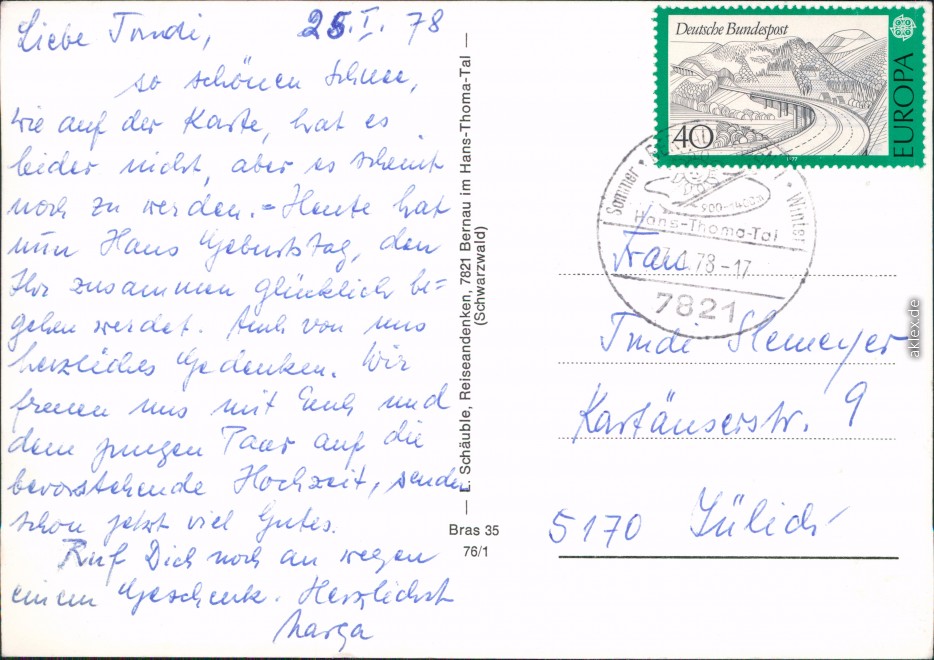 Liebe Trudi, 25.I.78
so schönen Schnee,
wie auf der Karte, hat es
leider nicht, aber es scheint
noch zu werden. - Heute hat
nun Hans Geburtstag, den
Ihr zusammen glücklich be-
gehen werdet. Auch von uns
herzliches Gedenken. Wir
freuen uns mit Euch und
dem jungen Paar auf die
bevorstehende Hochzeit, senden
schon jetzt viel Gutes.
Ruf Dich noch an wegen
einem Geschenk. Herzlichst
Marga
— L. Schäuble, Reiseandenken, 7821 Bernau im Hans-Thoma-Tal —
(Schwarzwald)
Bras 35
76/1
Deutsche Bundespost
40
EUROPA
1977
Sommer • Winter
900-1400m
Hans-Thoma-Tal
.78-17
7821
Frau
Trudi Slemeyer
Kartäuserstr. 9
5170 Jülich
aklex.de